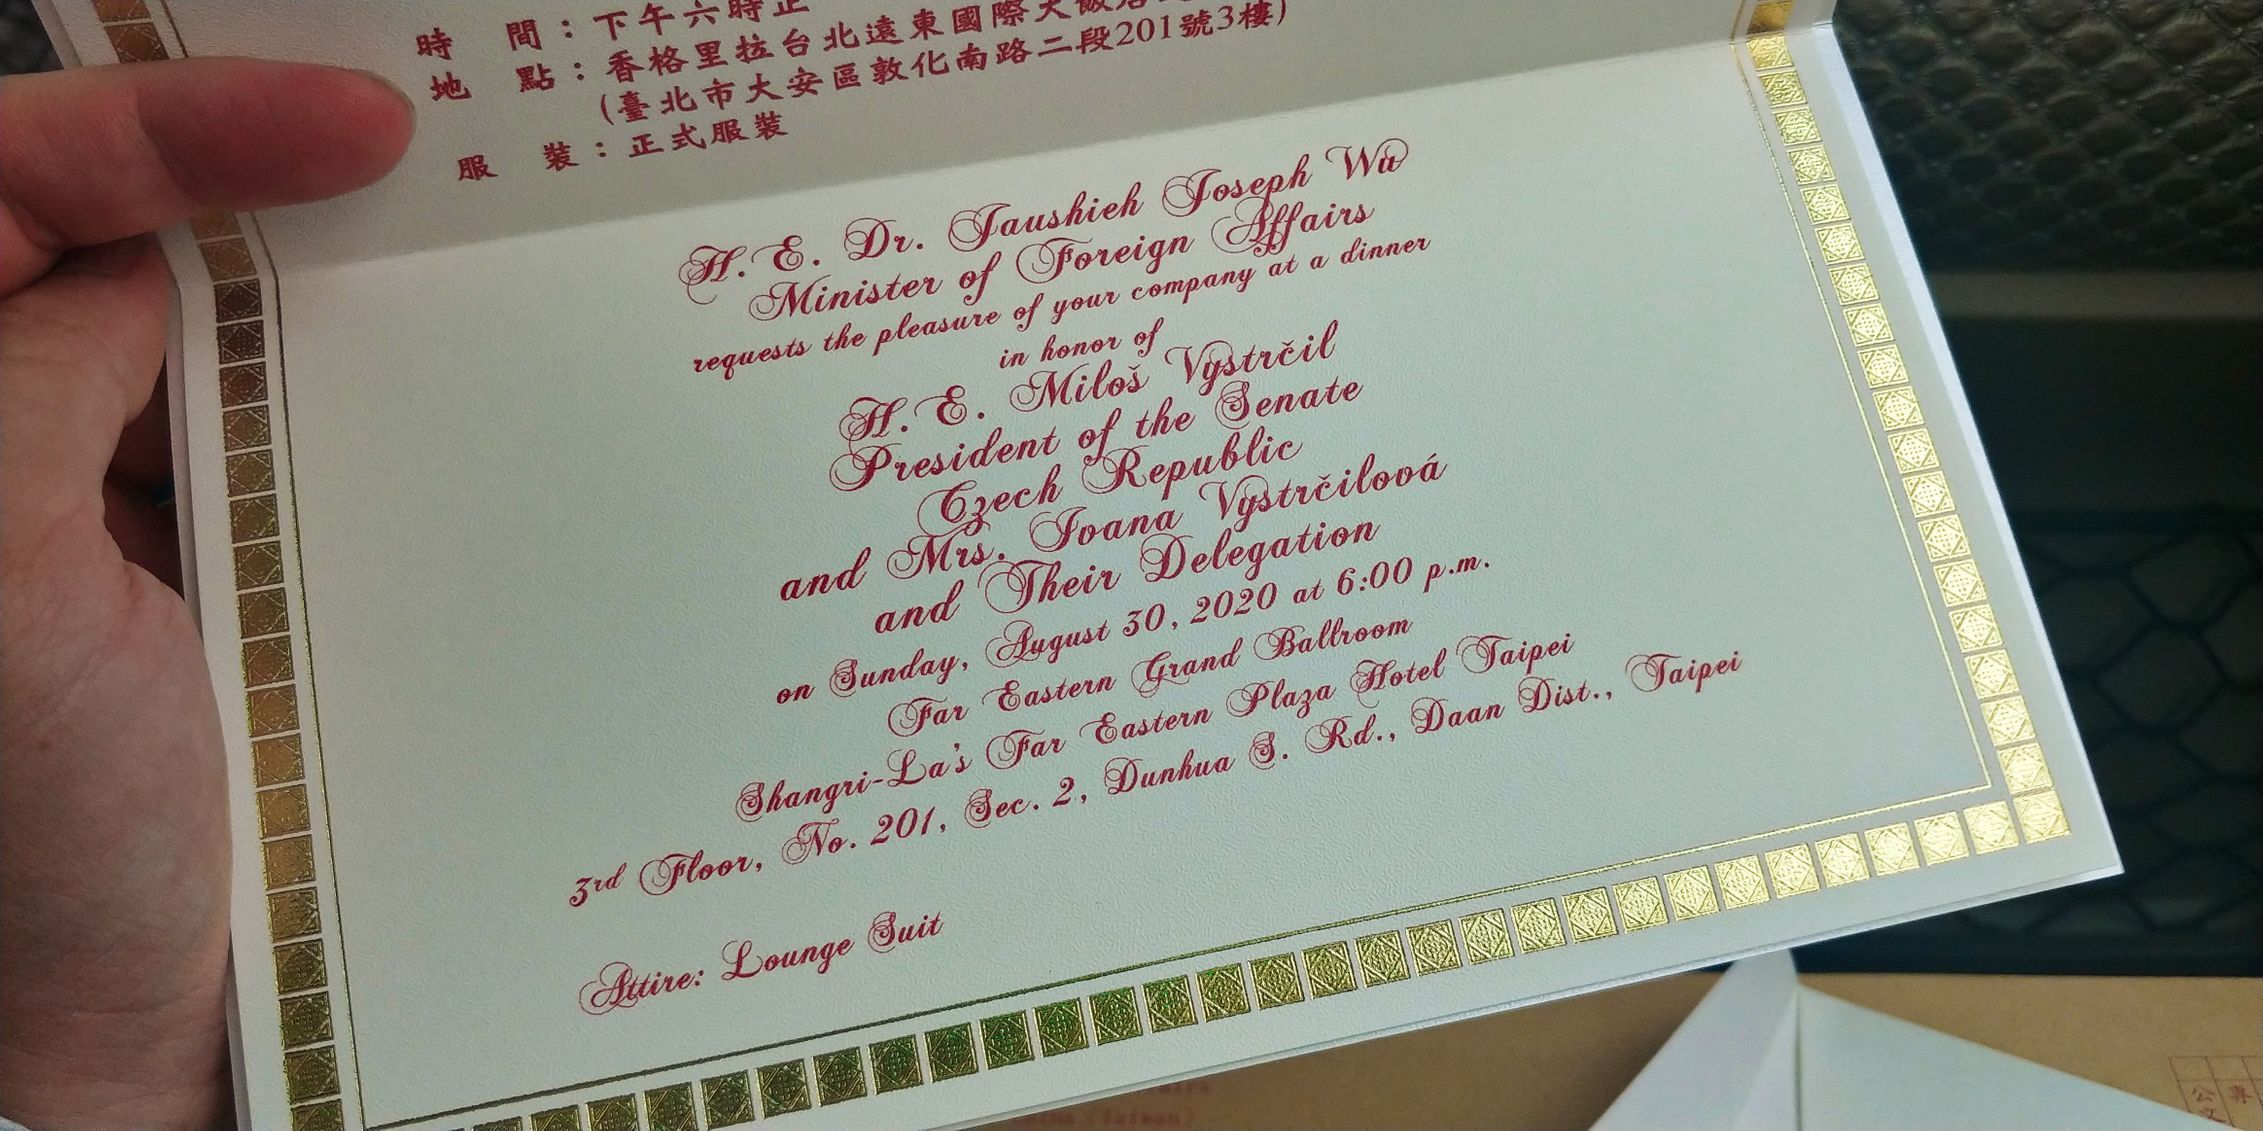 時 間：下午六時正
地 點：香格里拉台北遠東國際大飯店
(臺北市大安區敦化南路二段201號3樓)
服 裝：正式服裝
H.E. Dr. Jaushieh Joseph Wu
Minister of Foreign Affairs
requests the pleasure of your company at a dinner
in honor of
H.E. Miloš Vystrčil
President of the Senate
Czech Republic
and Mrs. Ivana Vystrčilová
and Their Delegation
on Sunday, August 30, 2020 at 6:00 p.m.
Far Eastern Grand Ballroom
Shangri-La's Far Eastern Plaza Hotel Taipei
3rd Floor, No. 201, Sec. 2, Dunhua S. Rd., Daan Dist., Taipei
Attire: Lounge Suit